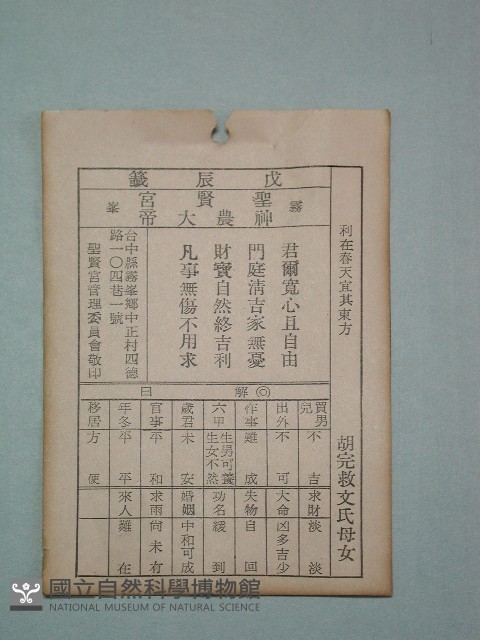 戊辰籤
霧峯
聖賢宮
神農大帝
利在春天宜其東方
胡完救文氏母女
君爾寬心且自由
門庭清吉家無憂
財寶自然終吉利
凡事無傷不用求
台中縣霧峯鄉中正村四德
路一〇四巷一號
聖賢宮管理委員會敬印
◎解曰
買男兒 不吉
出外 不可
作事 難成
六甲 生男可養 生女不然
歲君 未安
官事 平和
年冬 平平
移居 方便
求財 淡淡
大命 凶多吉少
失物 自回
功名 緩到
婚姻 中和可成
求雨 尚未有
來人 難在
國立自然科學博物館
NATIONAL MUSEUM OF NATURAL SCIENCE